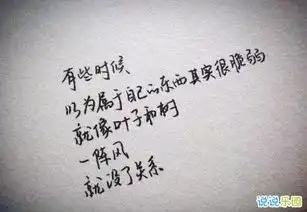 有些时候、
以为属于自己的东西其实很脆弱
就像叶子和树
一阵风
就没了关系
说说乐园